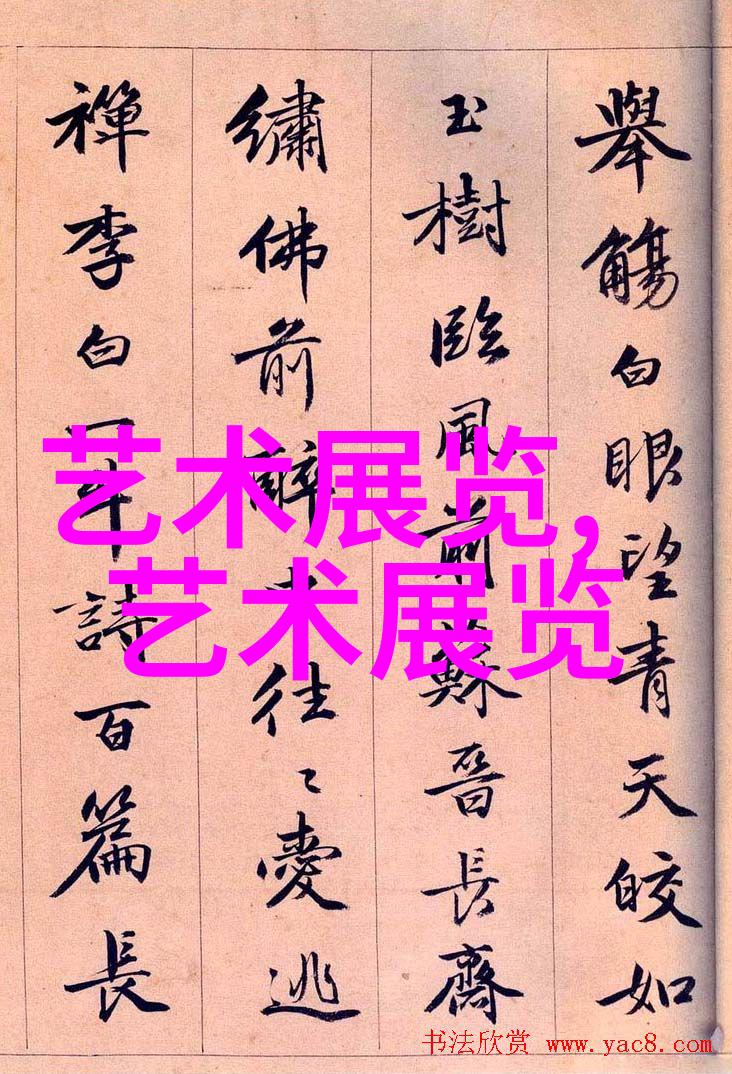 舉觴白眼望青天皎如
玉樹臨風前蘇晉長齋
繡佛前醉中往〻愛逃
禪李白一斗詩百篇長
艺术展览,
艺术展览
书法欣赏 www.yac8.com